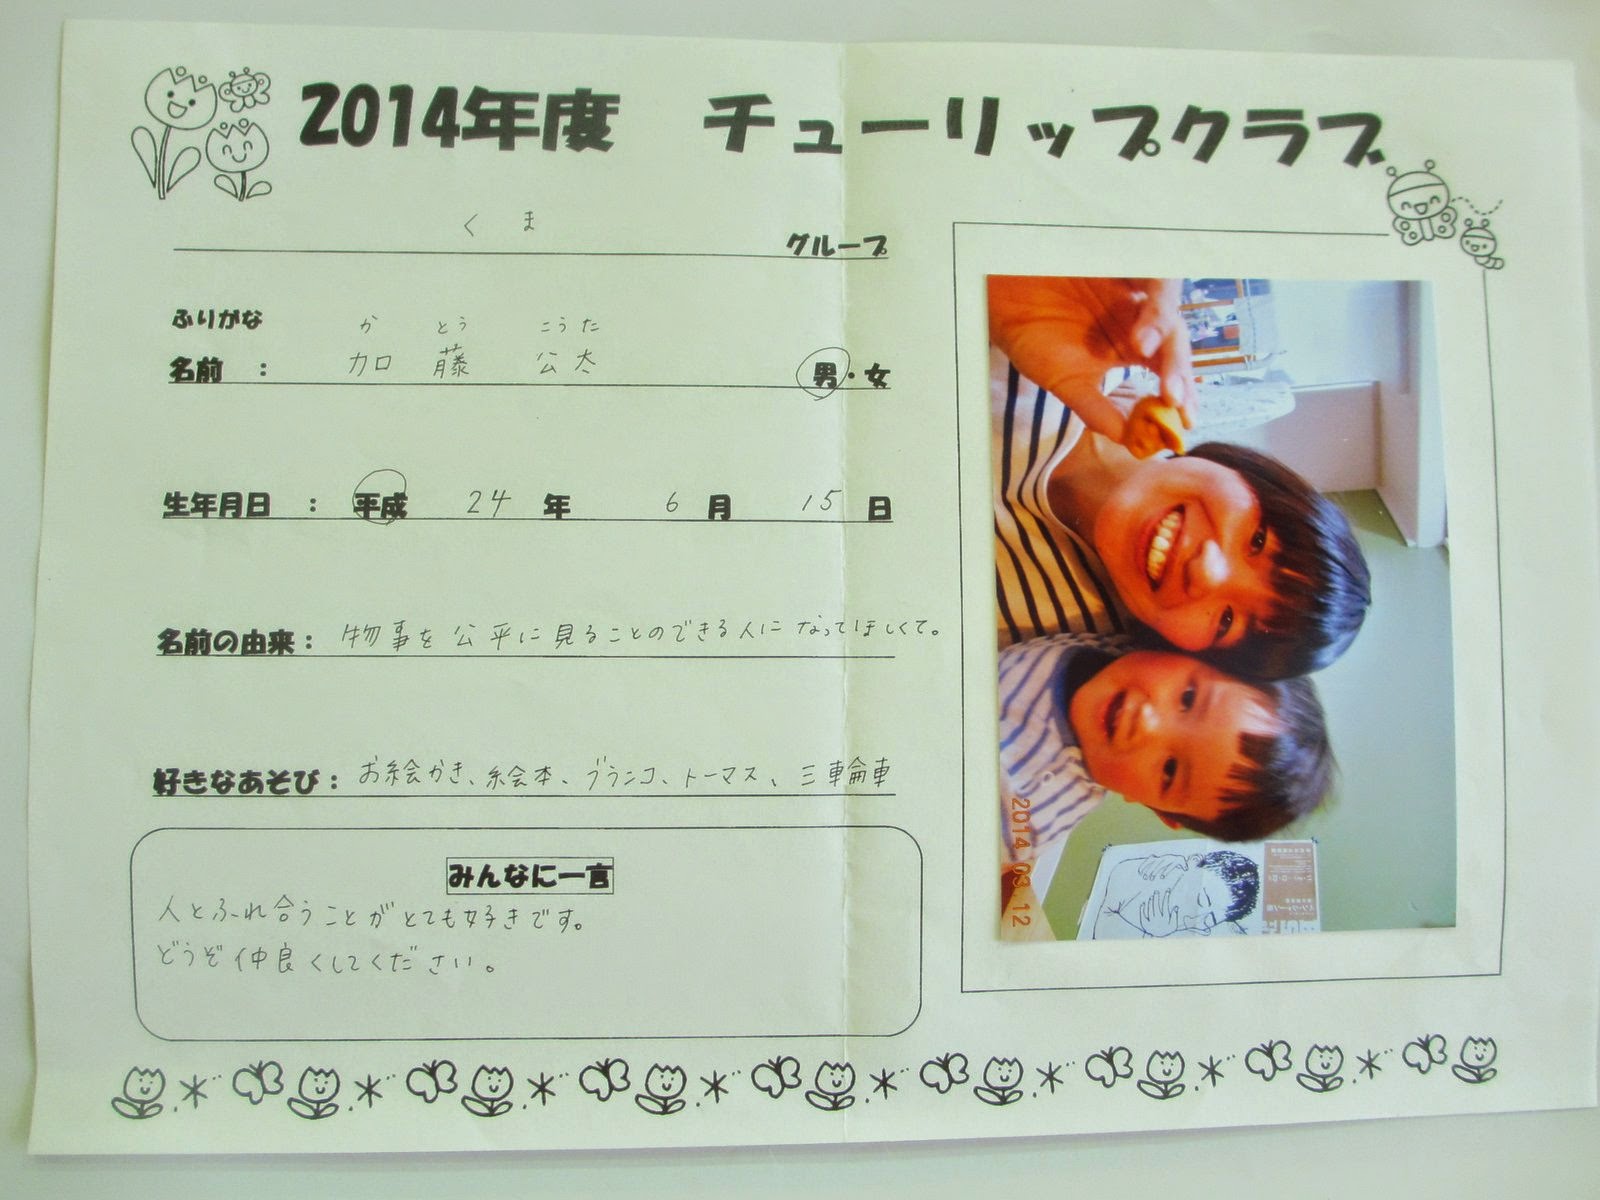 2014年度　チューリップクラブ
くま　グループ
ふりがな　かとう　こうた
名前　：　加藤　公太　男・女
生年月日　：　平成　24　年　6　月　15　日
名前の由来：　物事を公平に見ることのできる人になってほしくて。
好きなあそび：　お絵かき、絵本、ブランコ、トーマス、三輪車
みんなに一言
人とふれ合うことがとても好きです。
どうぞ仲良くしてください。
2014.03.12